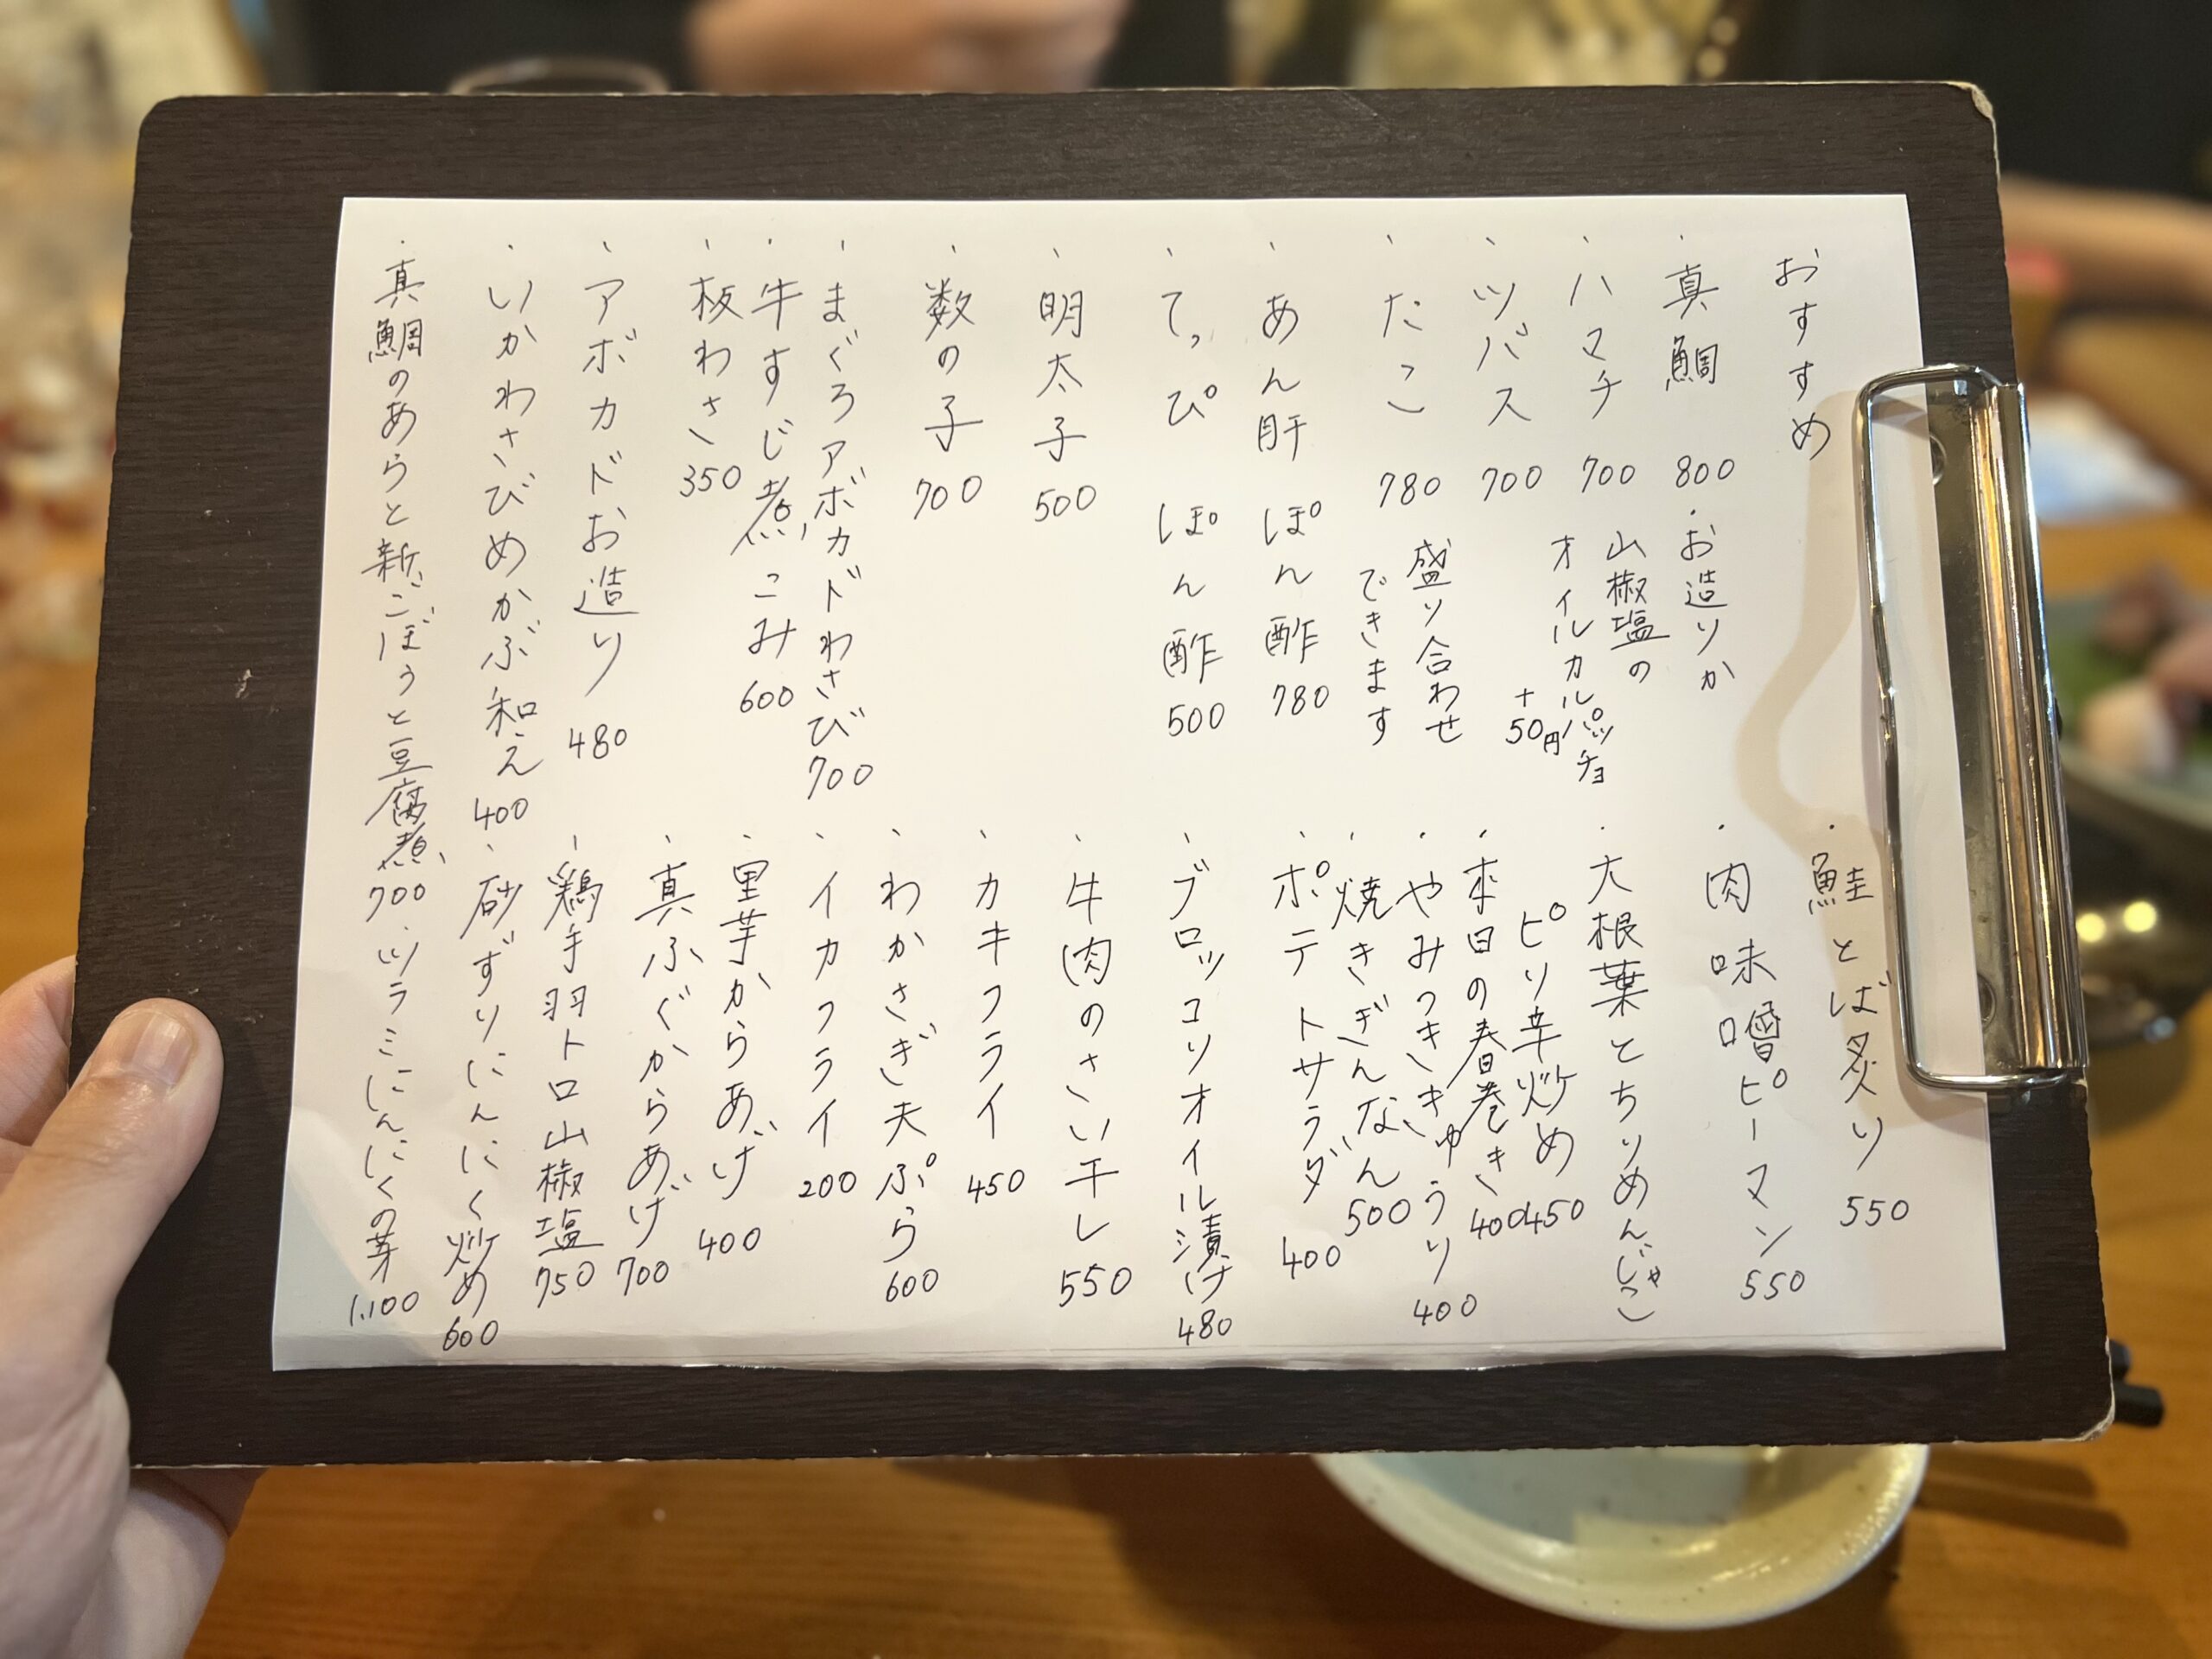 おすすめ
、真鯛 800
、ハマチ 700
、ツバス 700
、たこ 780
・お造りか
山椒塩の
オイルカルパッチョ
+50円
盛り合わせ
できます
、あん肝 ぽん酢 780
、てっぴ ぽん酢 500
、明太子 500
、数の子 700
、まぐろアボカドわさび 700
、牛すじ煮こみ 600
、板わさ 350
、アボカドお造り 480
、いかわさびめかぶ和え 400
、真鯛のあらと新ごぼうと豆腐煮 700
、鮭とば炙り 550
、肉味噌ピーマン 550
、大根葉とちりめんじゃこ
ピリ辛炒め 450
、本日の春巻き 400
、やみつききゅうり 400
、焼きぎんなん 500
、ポテトサラダ 400
、ブロッコリオイル漬け 480
、牛肉のさい干し 550
、カキフライ 450
、わかさぎ天ぷら 600
、イカフライ 200
、里芋からあげ 400
、真ふぐからあげ 700
、鶏手羽トロ山椒塩 750
、砂ずりにんにく炒め 600
、ツラミにんにくの芽 1,100